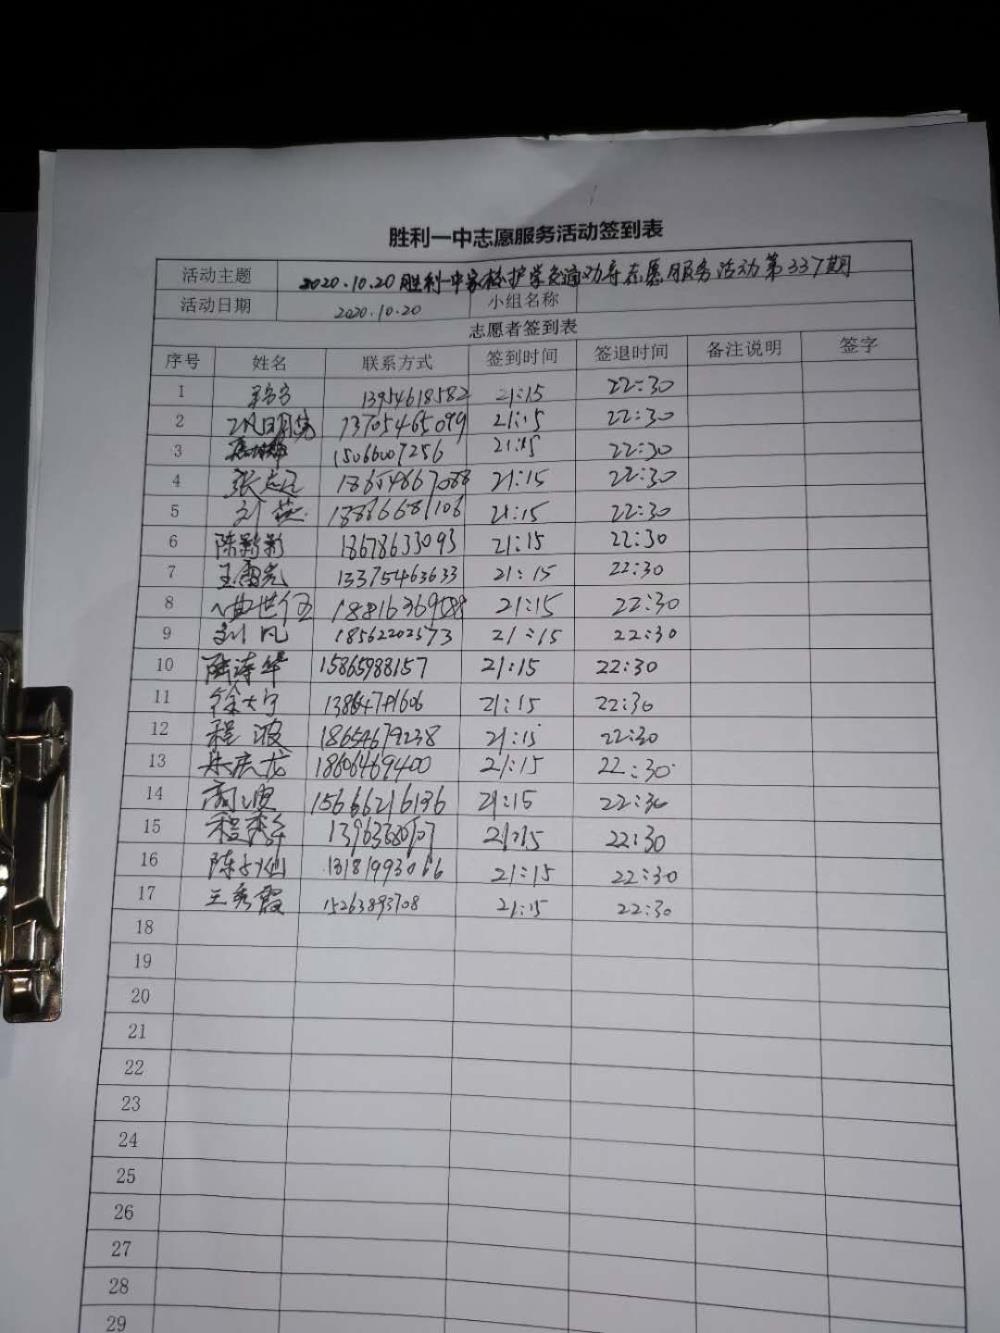 胜利一中志愿服务活动签到表
活动主题 2020.10.20胜利一中家校护学交通劝导志愿服务活动第337期
活动日期 2020.10.20 小组名称
志愿者签到表
序号 姓名 联系方式 签到时间 签退时间 备注说明 签字
1 13954618582 21:15 22:30
2 13705465099 21:15 22:30
3 15066007256 21:15 22:30
4 张志远 18654667088 21:15 22:30
5 刘英 21:15 22:30
6 陈影影 18678633093 21:15 22:30
7 王雷亮 13375463633 21:15 22:30
8 曲世伍 21:15 22:30
9 刘凡 18562202573 21:15 22:30
10 陆涛华 15865988157 21:15 22:30
11 徐大宁 21:15 22:30
12 程波 18654679238 21:15 22:30
13 朱庆龙 18606469400 21:15 22:30
14 周波 15666216136 21:15 22:30
15 21:15 22:30
16 13181993066 21:15 22:30
17 王秀霞 15263893708 21:15 22:30
18
19
20
21
22
23
24
25
26
27
28
29